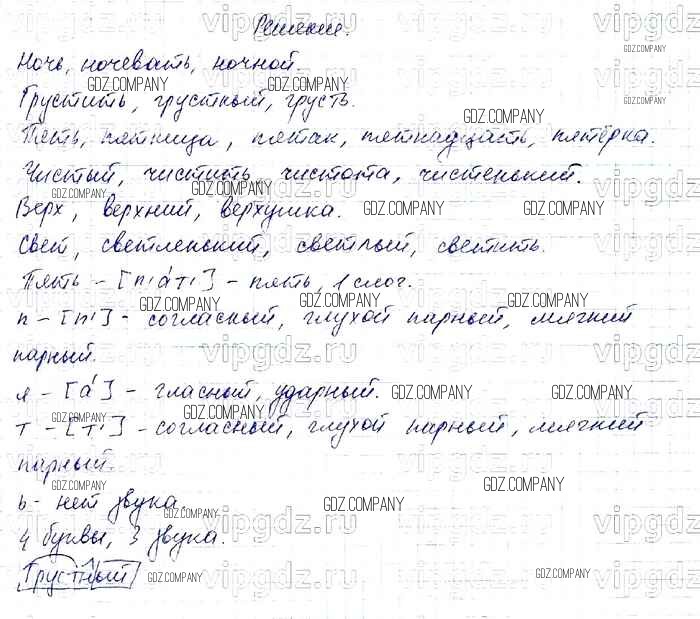 Решение.
Ночь, ночевать, ночной.
Грустить, грустный, грусть.
Пять, пятница, пятак, пятнадцать, пятёрка.
Чистый, чистить, чистота, чистенький.
Верх, верхний, верхушка.
Свет, светленький, светлый, светить.
Пять - [п'а́т'] - пять, 1 слог.
п - [п'] - согласный, глухой парный, мягкий
парный.
я - [а́] - гласный, ударный.
т - [т'] - согласный, глухой парный, мягкий
парный.
ь - нет звука.
4 буквы, 3 звука.
Грустный